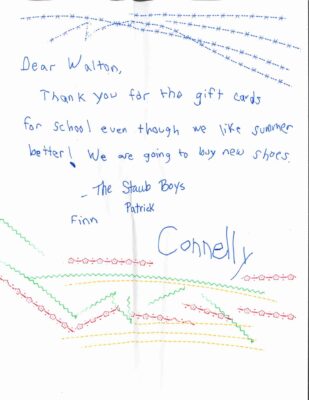 Dear Walton,
Thank you for the gift cards
for school even though we like summer
better! We are going to buy new shoes.
- The Staub Boys
Patrick
Finn
Connelly